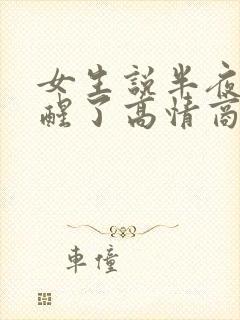 女生說半夜
醒了高情商
車憧